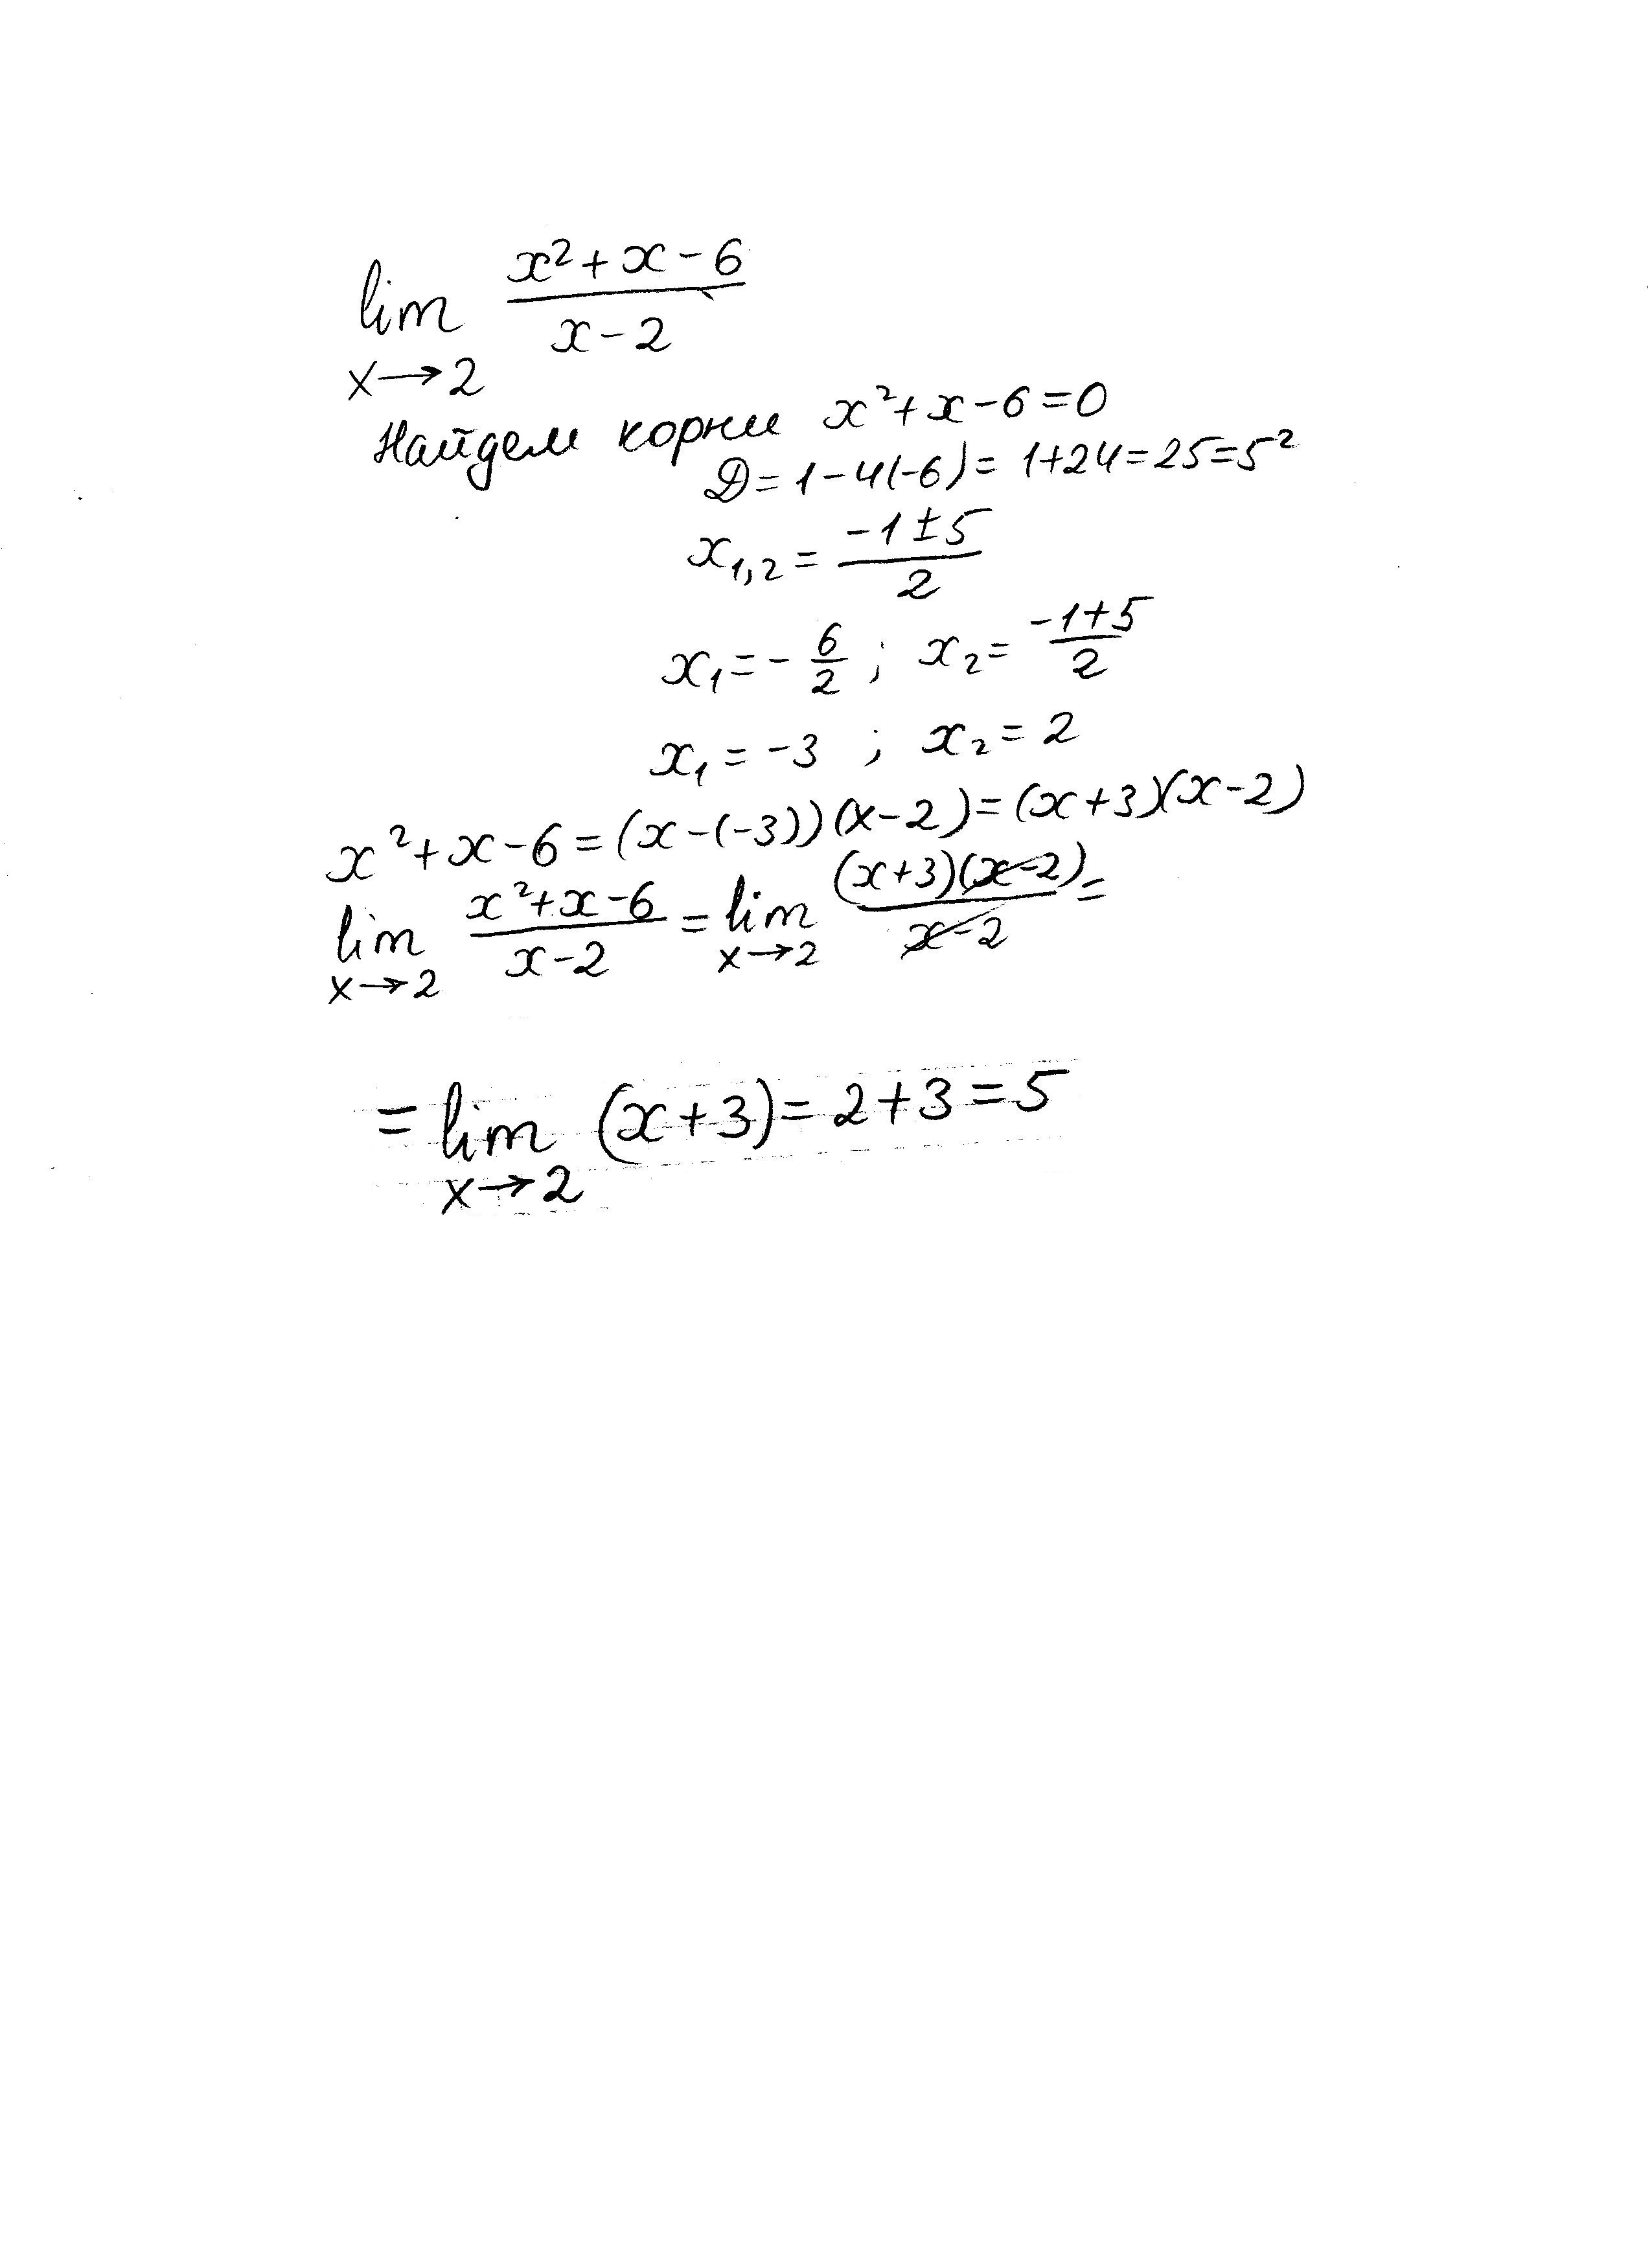 lim x→2 (x²+x-6)/(x-2)
Найдем корни x²+x-6=0
D=1-4(-6)=1+24=25=5²
x₁,₂=(-1±5)/2
x₁=-6/2 ; x₂=(-1+5)/2
x₁=-3 ; x₂=2
x²+x-6=(x-(-3))(x-2)=(x+3)(x-2)
lim x→2 (x²+x-6)/(x-2)=lim x→2 ((x+3)(x-2))/(x-2)=
=lim x→2 (x+3)=2+3=5